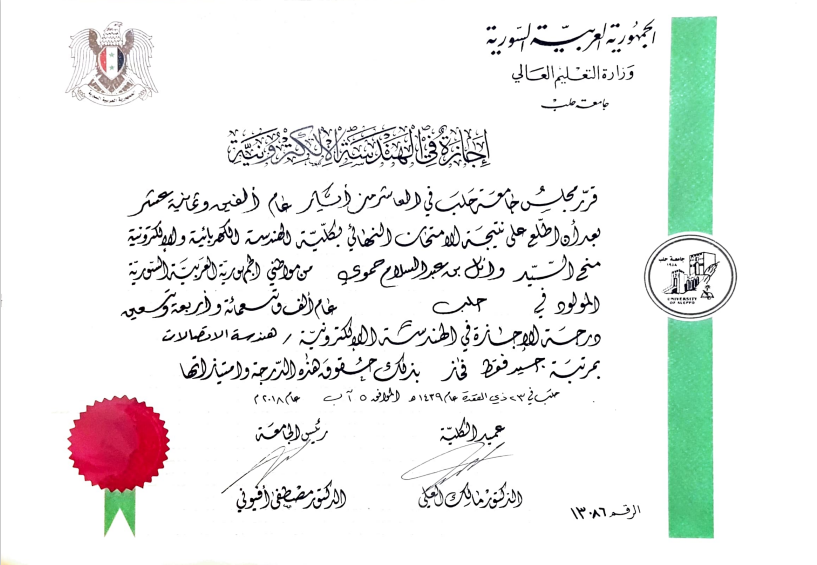 الجمهورية العربية السورية
وزارة التعليم العالي
جامعة حلب
الجمهورية العربية السورية
إجازة في الهندسة الإلكترونية
قرر مجلس جامعة حلب في العاشر من أيار عام ألفين وثمانية عشر
بعد أن اطلع على نتيجة الامتحان النهائي بكلية الهندسة الكهربائية والإلكترونية
منح السيد وائل بن عبد السلام حموي من مواطني الجمهورية العربية السورية
المولود في حلب عام ألف وتسعمائة وأربعة وتسعين
درجة الإجازة في الهندسة الإلكترونية / هندسة الاتصالات
بمرتبة جيد فقط فحاز بذلك حقوق هذه الدرجة وامتيازاتها
حلب في ٢٣ ذي القعدة عام ١٤٣٩ هـ الموافق ٥ آب عام ٢٠١٨ م
عميد الكلية رئيس الجامعة
الدكتور مالك العلي الدكتور مصطفى أفيوني
الرقم ١٣٠٨٦
جامعة حلب
١٩٥٨
UNIVERSITY
OF ALEPPO